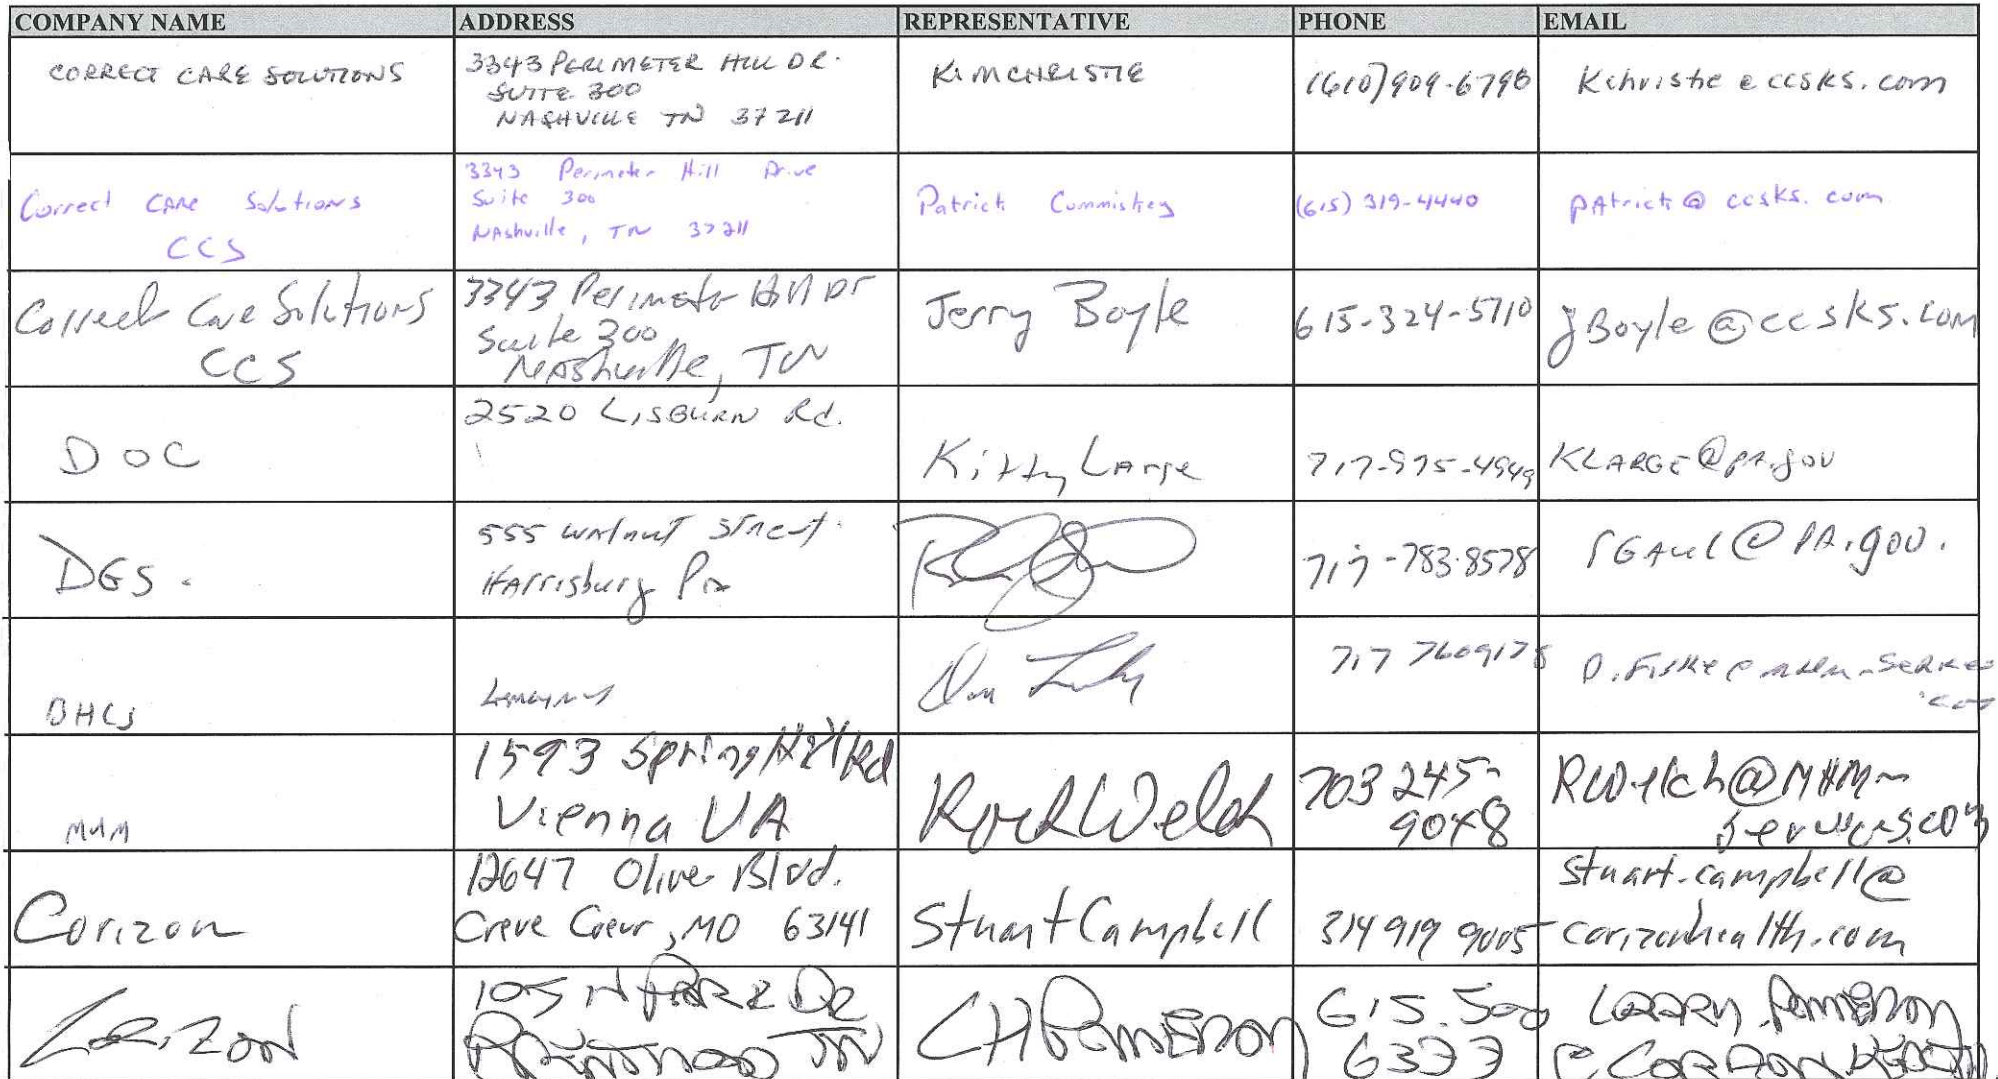 COMPANY NAME ADDRESS REPRESENTATIVE PHONE EMAIL
CORRECT CARE SOLUTIONS
3343 PERIMETER HILL DR.
SUITE 300
NASHVILLE TN 37211
KIM CHRISTIE
(610)909-6798
Kchristie@ccsks.com
Correct CARE Solutions
CCS
3343 Perimeter Hill Drive
Suite 300
NAshville, TN 37211
Patrick Cummiskey
(615) 319-4440
pAtrick@ccsks.com
Correct Care Solutions
CCS
3343 Perimeter Hill Dr
Suite 300
NAShville, TN
Jerry Boyle
615-324-5710
JBoyle@ccsks.com
DOC
2520 LISBURN Rd.
Kitty LArge
717-975-4949
KLARGE@pa.gov
DGS.
555 walnut Street
HArrisburg Pa
717-783-8578
rGAul@PA.gov.
717 7609178
MHM
1593 Spring Hill Rd
Vienna VA
703 245-
9048
RWelch@MHM-
services.com
Corizon
12647 Olive Blvd.
Creve Coeur, MO 63141
Stuart Campbell
314 919 9005
stuart.campbell@
corizonhealth.com
105 N PARK DR
BRENTWOOD TN
615.500
6377